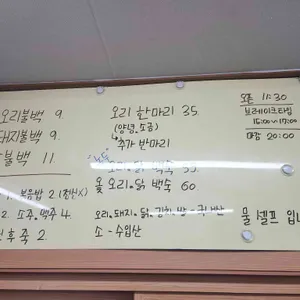 오리불백 9.
돼지불백 9.
불백 11.
볶음밥 2.(점심X)
2. 소주.맥주 4.
후죽 2.
오리 한마리 35.
(양념.소금)
↳추가 반마리
오리.닭 백숙 55.
옻 오리.닭 백숙 60
오리.돼지.닭.김치.쌀-국내산
소-수입산
오픈 11:30
브레이크타임
15:00~17:00
마감 20:00
물 셀프 입니